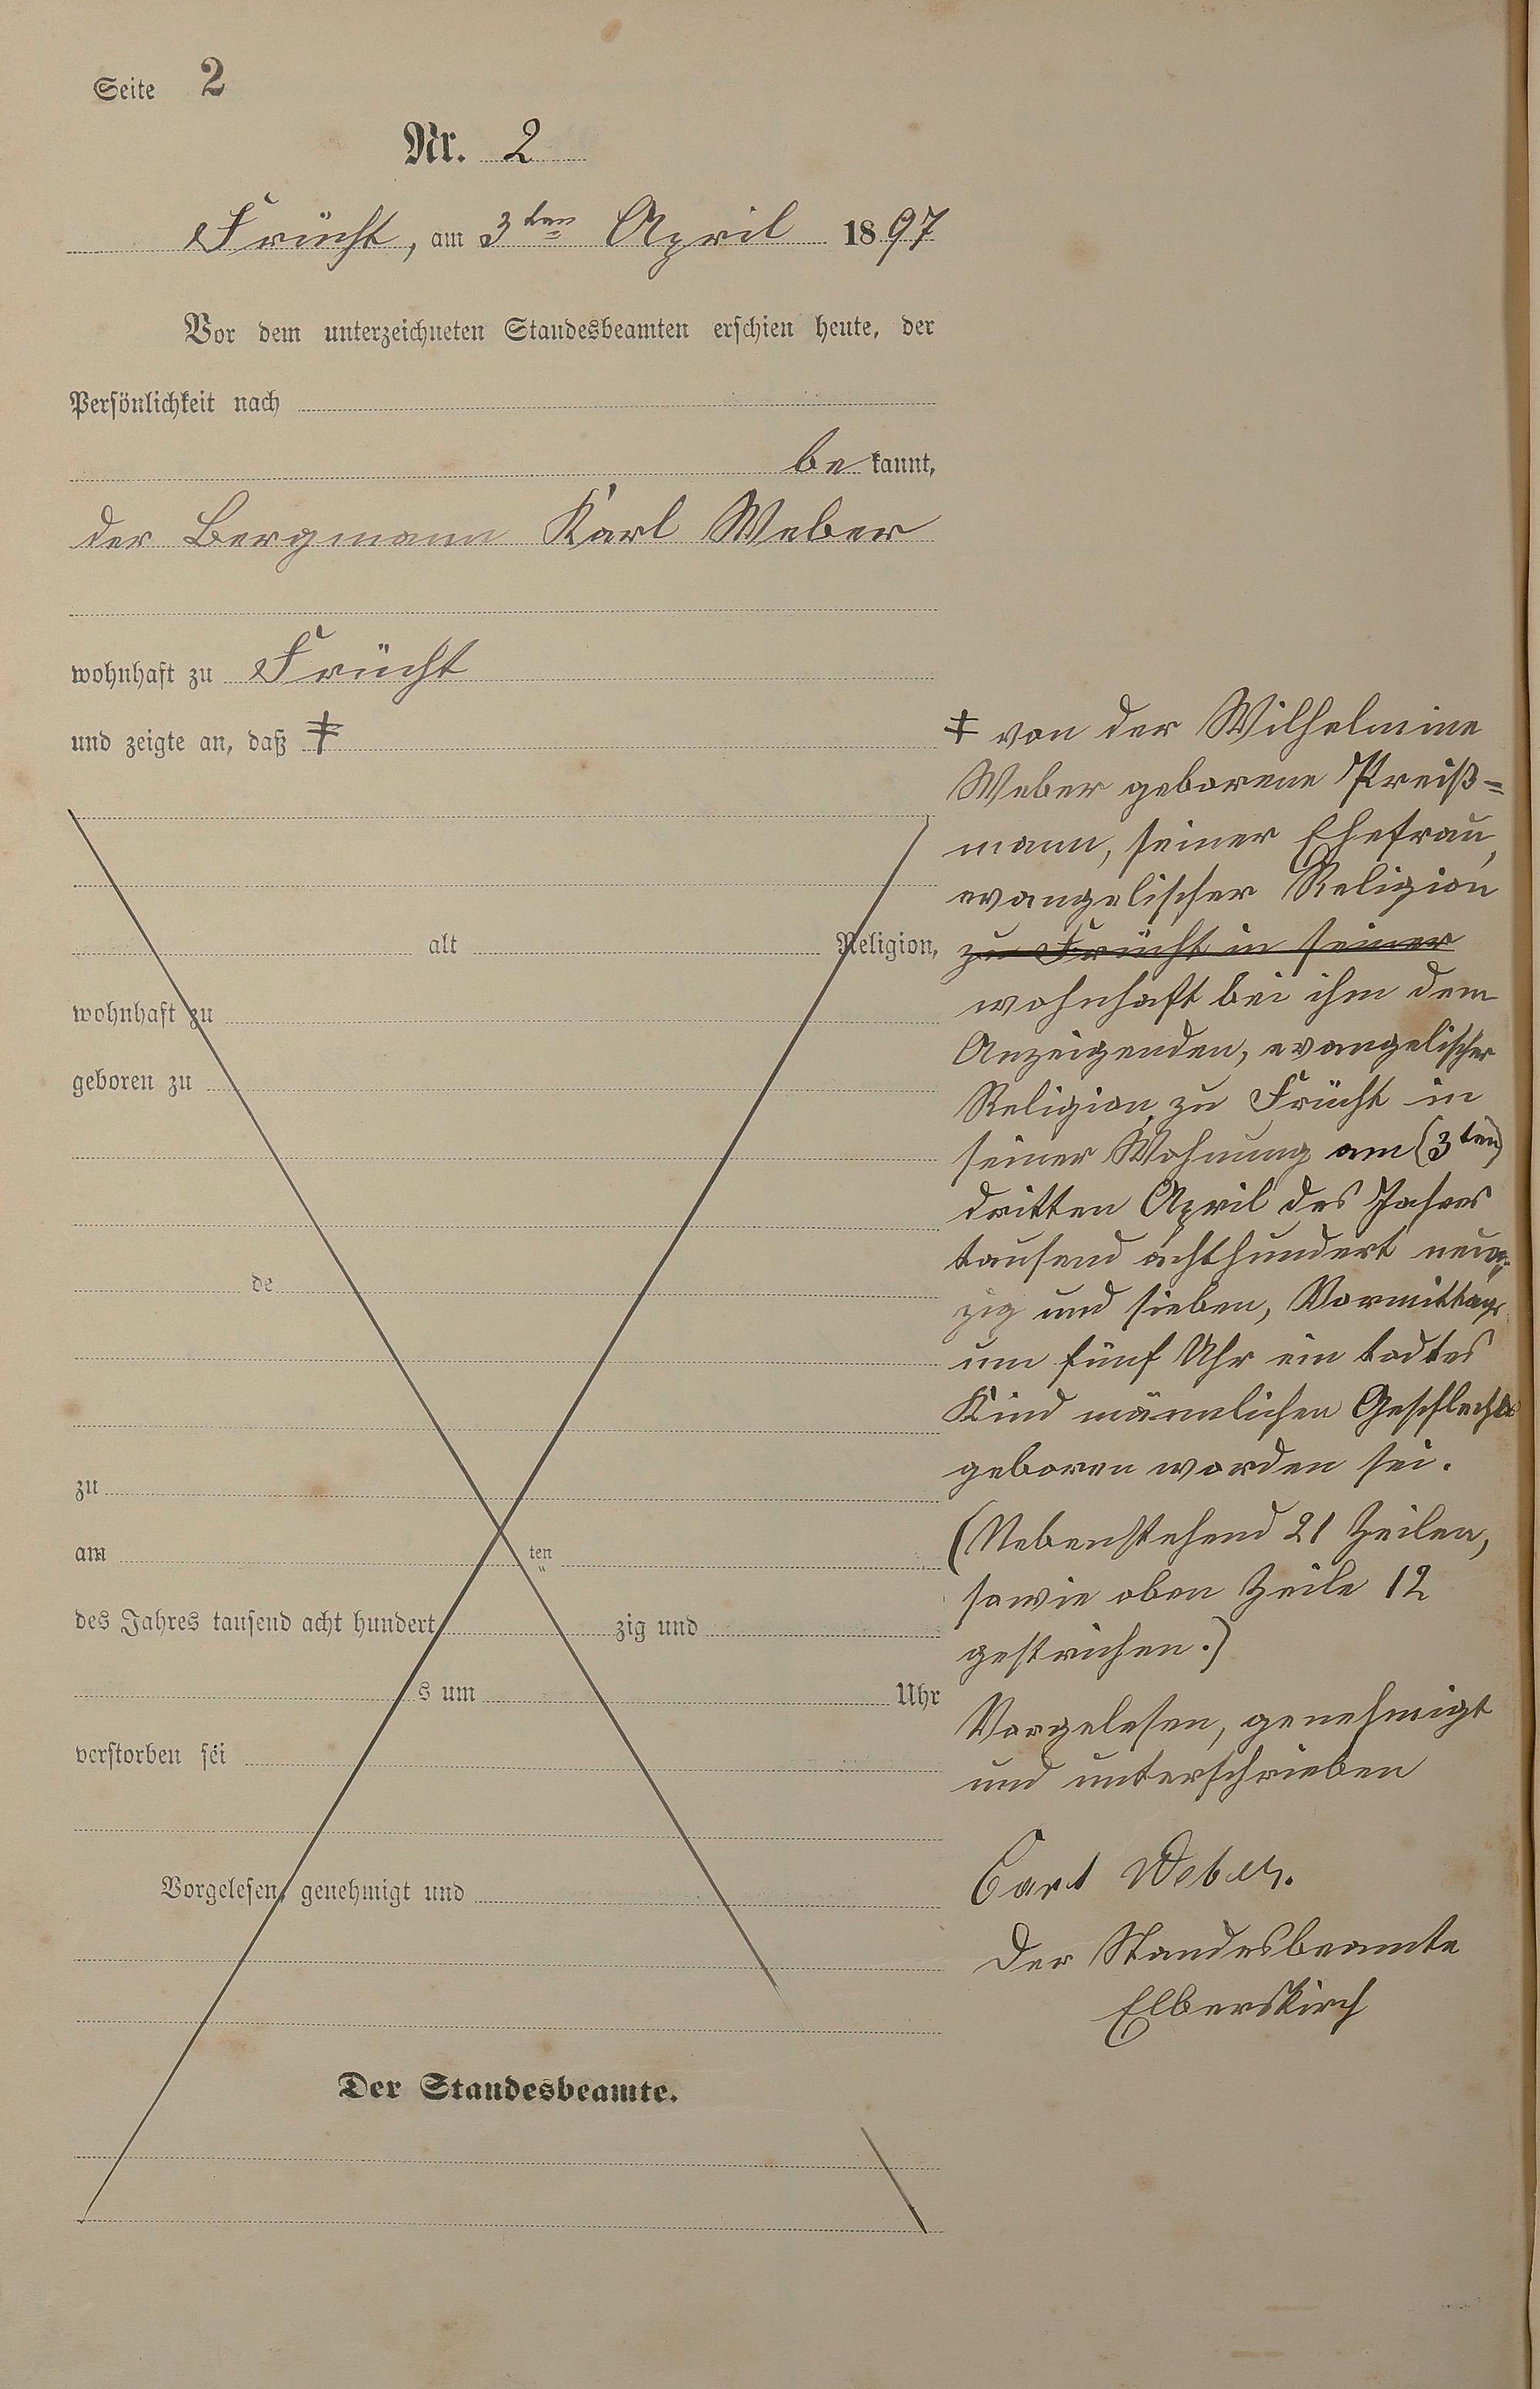 Seite 2
Nr. 2
Frücht, am 3ten April 1897
Vor dem unterzeichneten Standesbeamten erschien heute, der
Persönlichkeit nach
bekannt,
der Bergmann Karl Weber
wohnhaft zu Frücht
und zeigte an, daß ǂ
alt Religion,
wohnhaft zu
geboren zu
de
zu
am ten
des Jahres tausend acht hundert zig und
s um Uhr
verstorben sei
Vorgelesen, genehmigt und
Der Standesbeamte.
ǂ von der Wilhelmine
Weber geborene Preiß=
mann, seiner Ehefrau,
evangelischer Religion
zu Frücht in seiner
wohnhaft bei ihm dem
Anzeigenden, evangelischer
Religion, zu Frücht in
seiner Wohnung am (3ten)
dritten April des Jahres
tausend achthundert neun=
zig und sieben, Vormittags
um fünf Uhr ein todtes
Kind männlichen Geschlechts
geboren worden sei.
(Nebenstehend 21 Zeilen,
sowie oben Zeile 12
gestrichen.)
Vorgelesen, genehmigt
und unterschrieben
Carl Weber.
Der Standesbeamte
Elberskirch